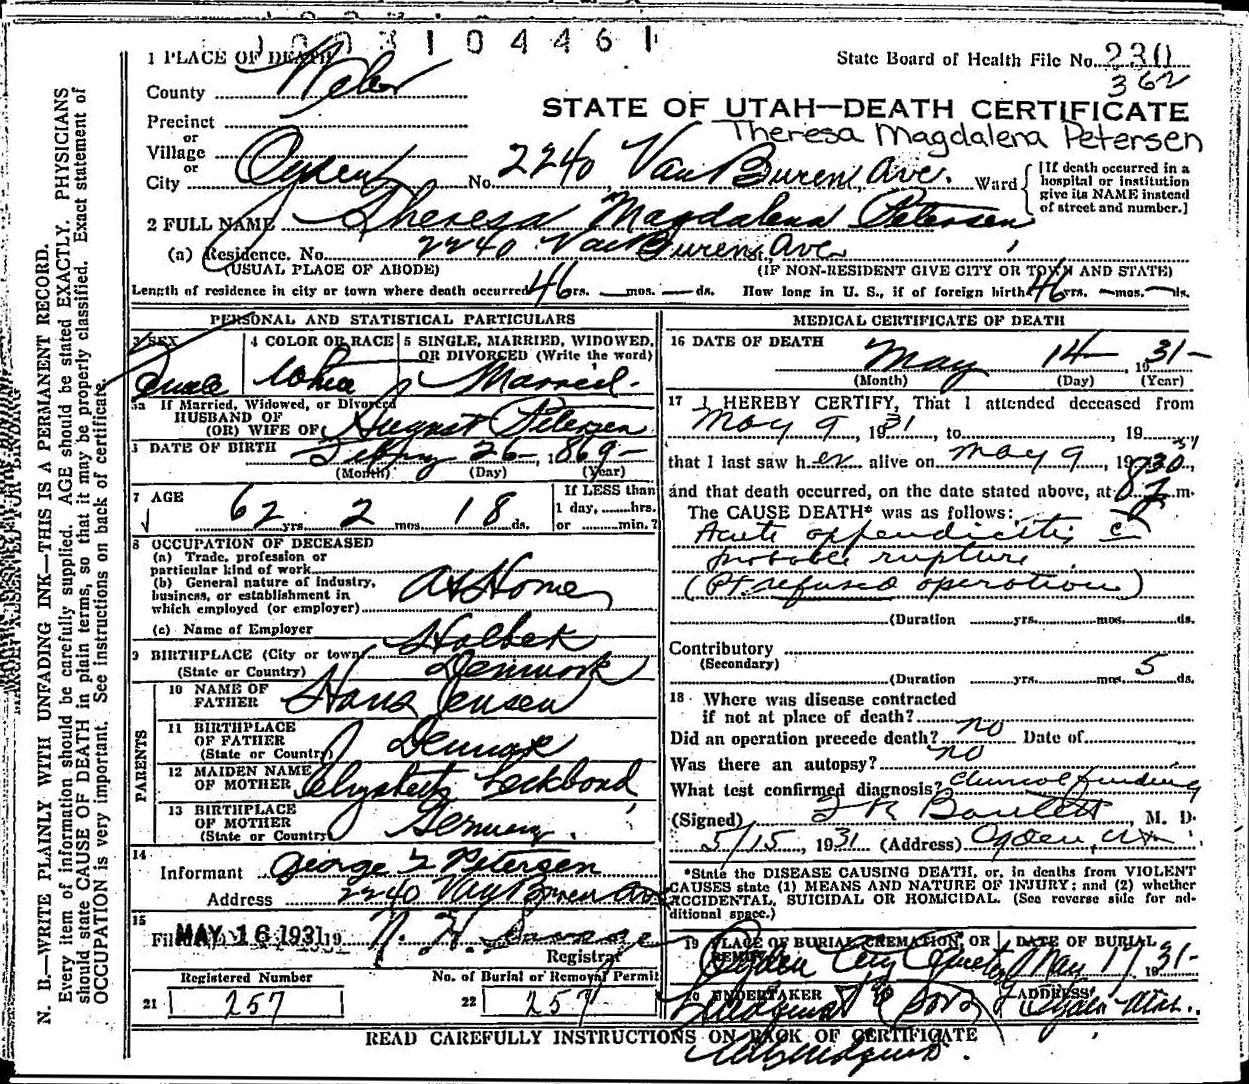 1003104461
1 PLACE OF DEATH
State Board of Health File No. 230
362
County Weber
STATE OF UTAH—DEATH CERTIFICATE
Theresa Magdalena Petersen
Precinct
or
Village
or
City Ogden No. 2240 Van Buren Ave. Ward
[If death occurred in a hospital or institution give its NAME instead of street and number.]
2 FULL NAME Theresa Magdalena Petersen
(a) Residence. No. 2240 Van Buren Ave
(USUAL PLACE OF ABODE) (IF NON-RESIDENT GIVE CITY OR TOWN AND STATE)
Length of residence in city or town where death occurred 46 yrs. — mos. — ds. How long in U. S., if of foreign birth 46 yrs. — mos. — ds.
PERSONAL AND STATISTICAL PARTICULARS
3 SEX
4 COLOR OR RACE White
5 SINGLE, MARRIED, WIDOWED, OR DIVORCED (Write the word)
Married
5a If Married, Widowed, or Divorced
HUSBAND OF
(OR) WIFE OF August Petersen
DATE OF BIRTH 26 — 1869 —
(Month) (Day) (Year)
7 AGE
62 yrs. 2 mos. 18 ds.
If LESS than
1 day, ......hrs.
or ......min.?
8 OCCUPATION OF DECEASED
(a) Trade, profession or
particular kind of work
(b) General nature of industry,
business, or establishment in
which employed (or employer) At Home
(c) Name of Employer
9 BIRTHPLACE (City or town) Holbek
(State or Country) Denmark
PARENTS
10 NAME OF
FATHER Hans Jensen
11 BIRTHPLACE
OF FATHER
(State or Country) Denmark
12 MAIDEN NAME
OF MOTHER Elizabeth
13 BIRTHPLACE
OF MOTHER
(State or Country) Germany
14
Informant George Petersen
Address 2240 Van Buren Ave
15
Filed MAY 16 1931 19
Registrar
Registered Number
21 257
No. of Burial or Removal Permit
22 257
MEDICAL CERTIFICATE OF DEATH
16 DATE OF DEATH
May 14 — , 1931 —
(Month) (Day) (Year)
17 I HEREBY CERTIFY, That I attended deceased from
May 9, 1931, to , 19
that I last saw her alive on May 9, 1931
and that death occurred, on the date stated above, at 830 m.
The CAUSE DEATH* was as follows:
Acute appendicitis c̄
probable rupture
(Pt. refused operation)
(Duration ......yrs. ......mos. ......ds.
Contributory
(Secondary)
(Duration ......yrs. ......mos. 5 ds.
18 Where was disease contracted
if not at place of death?
Did an operation precede death? no Date of
Was there an autopsy? no
What test confirmed diagnosis? Clinical finding
(Signed) Bartlett, M. D.
5/15, 1931 (Address) Ogden, Utah
*State the DISEASE CAUSING DEATH, or, in deaths from VIOLENT
CAUSES state (1) MEANS AND NATURE OF INJURY; and (2) whether
ACCIDENTAL, SUICIDAL OR HOMICIDAL. (See reverse side for additional space.)
19 PLACE OF BURIAL, CREMATION, OR REMOVAL Ogden City Cemetery
DATE OF BURIAL May 17 1931 —
20 UNDERTAKER & Sons
ADDRESS Ogden Utah.
READ CAREFULLY INSTRUCTIONS ON BACK OF CERTIFICATE
N. B.—WRITE PLAINLY WITH UNFADING INK—THIS IS A PERMANENT RECORD.
Every item of information should be carefully supplied. AGE should be stated EXACTLY. PHYSICIANS
should state CAUSE OF DEATH in plain terms, so that it may be properly classified. Exact statement of
OCCUPATION is very important. See instructions on back of certificate.